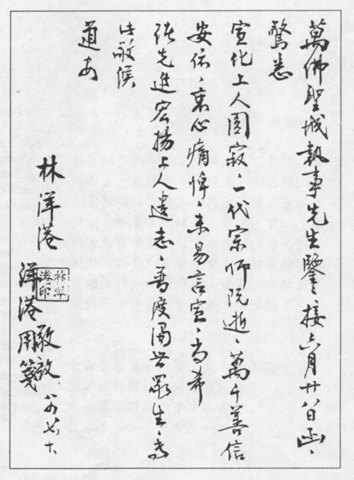 萬佛聖城執事先生鑒:接六月廿八日函,
驚悉
宣化上人圓寂,一代宗師既逝,萬千善信
安依,衷心痛悼,未易言宣,尚希
諸先進宏揚上人遺志,普度濁世眾生,專
此敬候
道安
林洋港 敬啟 八四、七、十
林洋港印
洋港用箋